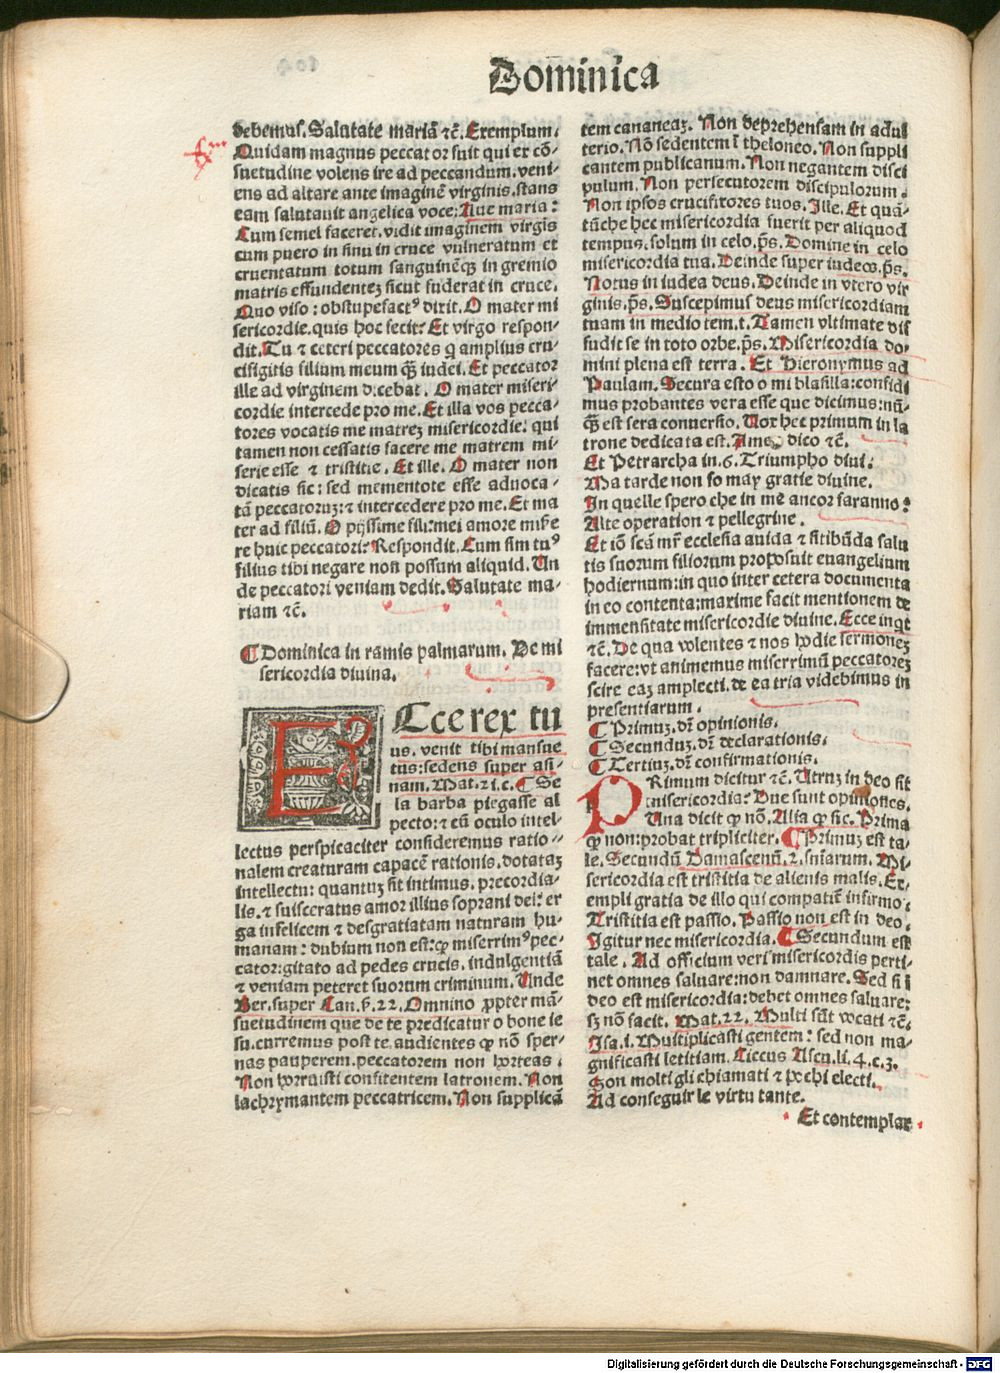 Dom̄inica
debemus. Salutate mariã ⁊c̃. Exemplum.
Quidam magnus peccator fuit qui ex cõ-
suetudine volens ire ad peccandum. veni-
ens ad altare ante imaginẽ virginis. stans
eam salutauit angelica voce: Aue maria:
Cum semel faceret. vidit imaginem virgis
cum puero in sinu in cruce vulneratum et
cruentatum totum sanguinẽqꝫ in gremio
matris effundenteꝫ sicut fuderat in cruce.
Quo viso: obstupefactꝰ dixit. O mater mi
sericordie. quis hoc fecit? Et virgo respon-
dit. Tu ⁊ ceteri peccatores q̃ amplius cru-
cifigitis filium meum qꝫ̃ iudei. Et peccator
ille ad virginem dicebat. O mater miseri-
cordie intercede pro me. Et illa vos pecca-
tores vocatis me matreꝫ misericordie: qui
tamen non cessatis facere me matrem mi-
serie esse ⁊ tristitie. Et ille. O mater non
dicatis sic: sed mementote esse aduoca-
tã peccatoruꝫ: ⁊ intercedere pro me. Et ma
ter ad filiũ. O pijssime fili: mei amore mise
re huic peccatori? Respondit. Cum sim tuꝰ
filius tibi negare non possum aliquid. Un
de peccatori veniam dedit. Salutate ma-
riam ⁊c̃.
¶ Dominica in ramis palmarum. De mi
sericordia diuina.
ECce rex tu
us. venit tibi mansue
tus: sedens super asi-
nam. Mat. 21. c. ¶ Se
la barba piegasse al
pecto: ⁊ cũ oculo intel-
lectus perspicaciter consideremus ratio-
nalem creaturam capacẽ rationis. dotataꝫ
intellectu: quantuꝫ sit intimus. precordia-
lis. ⁊ suisceratus amor illius soprani dei: er
ga infelicem ⁊ desgratiatam naturam hu-
manam: dubium non est: ꝙ miserrimꝰ pec-
cator: gitato ad pedes crucis. indulgentiã
⁊ veniam peteret suorum criminum. Unde
Ber. super Can. ẝ. 22. Omnino ꝓpter mã-
suetudinem que de te predicatur o bone ie
su. curremus post te. audientes ꝙ nõ sper-
nas pauperem. peccatorem non horreas.
Non horruisti confitentem latronem. Non
lachrymantem peccatricem. Non supplicã
tem cananeaꝫ. Non deprehensam in adul
terio. Nõ sedentem ĩ theloneo. Non suppli
cantem publicanum. Non negantem disci
pulum. Non persecutorem discipulorum.
Non ipsos crucifixores tuos. Ille. Et quã-
tũche hec misericordia fuerit per aliquod
tempus. solum in celo. p̃s. Domine in celo
misericordia tua. Deinde super iudeos. p̃s.
Notus in iudea deus. Deinde in vtero vir
ginis. p̃s. Suscepimus deus misericordiam
tuam in medio tem. t. Tamen vltimate dif
fudit se in toto orbe. p̃s. Misericordia do-
mini plena est terra. Et Hieronymus ad
Paulam. Secura esto o mi blasilla: confidi
mus probantes vera esse que dicimus: nũ-
qꝫ̃ est sera conuersio. Uox hec primum in la
trone dedicata est. Ame dico ⁊c̃.
Et Petrarcha in. 6. Triumpho diui.
Ma tarde non fo may gratie diuine.
In quelle spero che in me ancor faranno:
Alte operation ⁊ pellegrine.
Et iõ scã mr̃ ecclesia auida ⁊ sitibũda salu
tis suorum filiorum proposuit euangelium
hodiernum: in quo inter cetera documenta
in eo contenta: maxime facit mentionem de
immensitate misericordie diuine. Ecce inqt
⁊c̃. De qua volentes ⁊ nos hodie sermoneꝫ
facere: vt animemus miserrimũ peccatoreꝫ
scire eaꝫ amplecti. de ea tria videbimus in
presentiarum.
¶ Primuꝫ. dr̃ opinionis.
¶ Secunduꝫ. dr̃ declarationis.
¶ Tertiuꝫ. dr̃ confirmationis.
PRimum dicitur ⁊c̃. Utruꝫ in deo sit
misericordia? Due sunt opiniones.
Una dicit ꝙ nõ. Alia ꝙ sic. Prima
ꝙ non: probat tripliciter. ¶ Primuꝫ est ta-
le. Secundũ Damascenũ. 2. sñiarum. Mi-
sericordia est tristitia de alienis malis. Ex-
empli gratia de illo qui compatit̃ infirmo.
Tristitia est passio. Passio non est in deo.
Igitur nec misericordia. ¶ Secundum est
tale. Ad officium veri misericordis perti-
net omnes saluare: non damnare. Sed si ĩ
deo est misericordia: debet omnes saluare:
sꝫ nõ facit. Mat. 22. Multi sũt vocati ⁊c̃.
Isa. i. Multiplicasti gentem: sed non ma-
gnificasti letitiam. Ciccus Ascu. li. 4. c. 3.
Son molti gli chiamati ⁊ pochi electi.
Ad conseguir le virtu tante.
Et contemplar
Digitalisierung gefördert durch die Deutsche Forschungsgemeinschaft - DFG